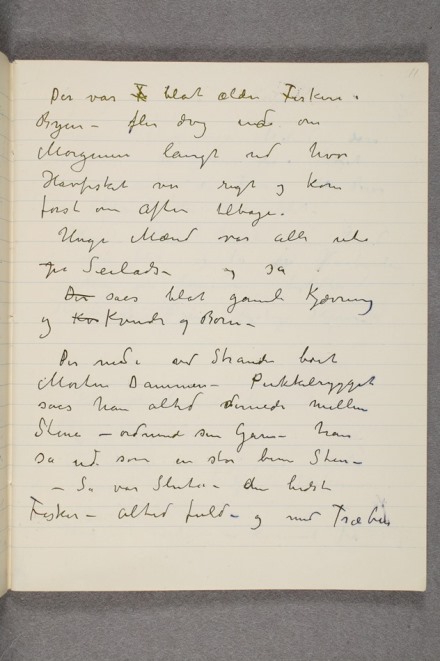 Der var blot ældre Fiskere i
Byen – der drog ud om
Morgenen langt ud hvor
Havfisket var rigt og kom
først om Aften tilbage.
Unge Mænd var alle ude
paa Seilads – og saa
Der saaes blot gamle
og Kvinder og Børn –
Der nede ved Stranden boet
Morten Dammen – Pukkelrygget
saaes han altid dernede mellem
Stene – ordnende sine Garn – han
saa ud som en stor brun Sten –
– Saa var – den bedste
Fisker – altid fuld – og med Træben